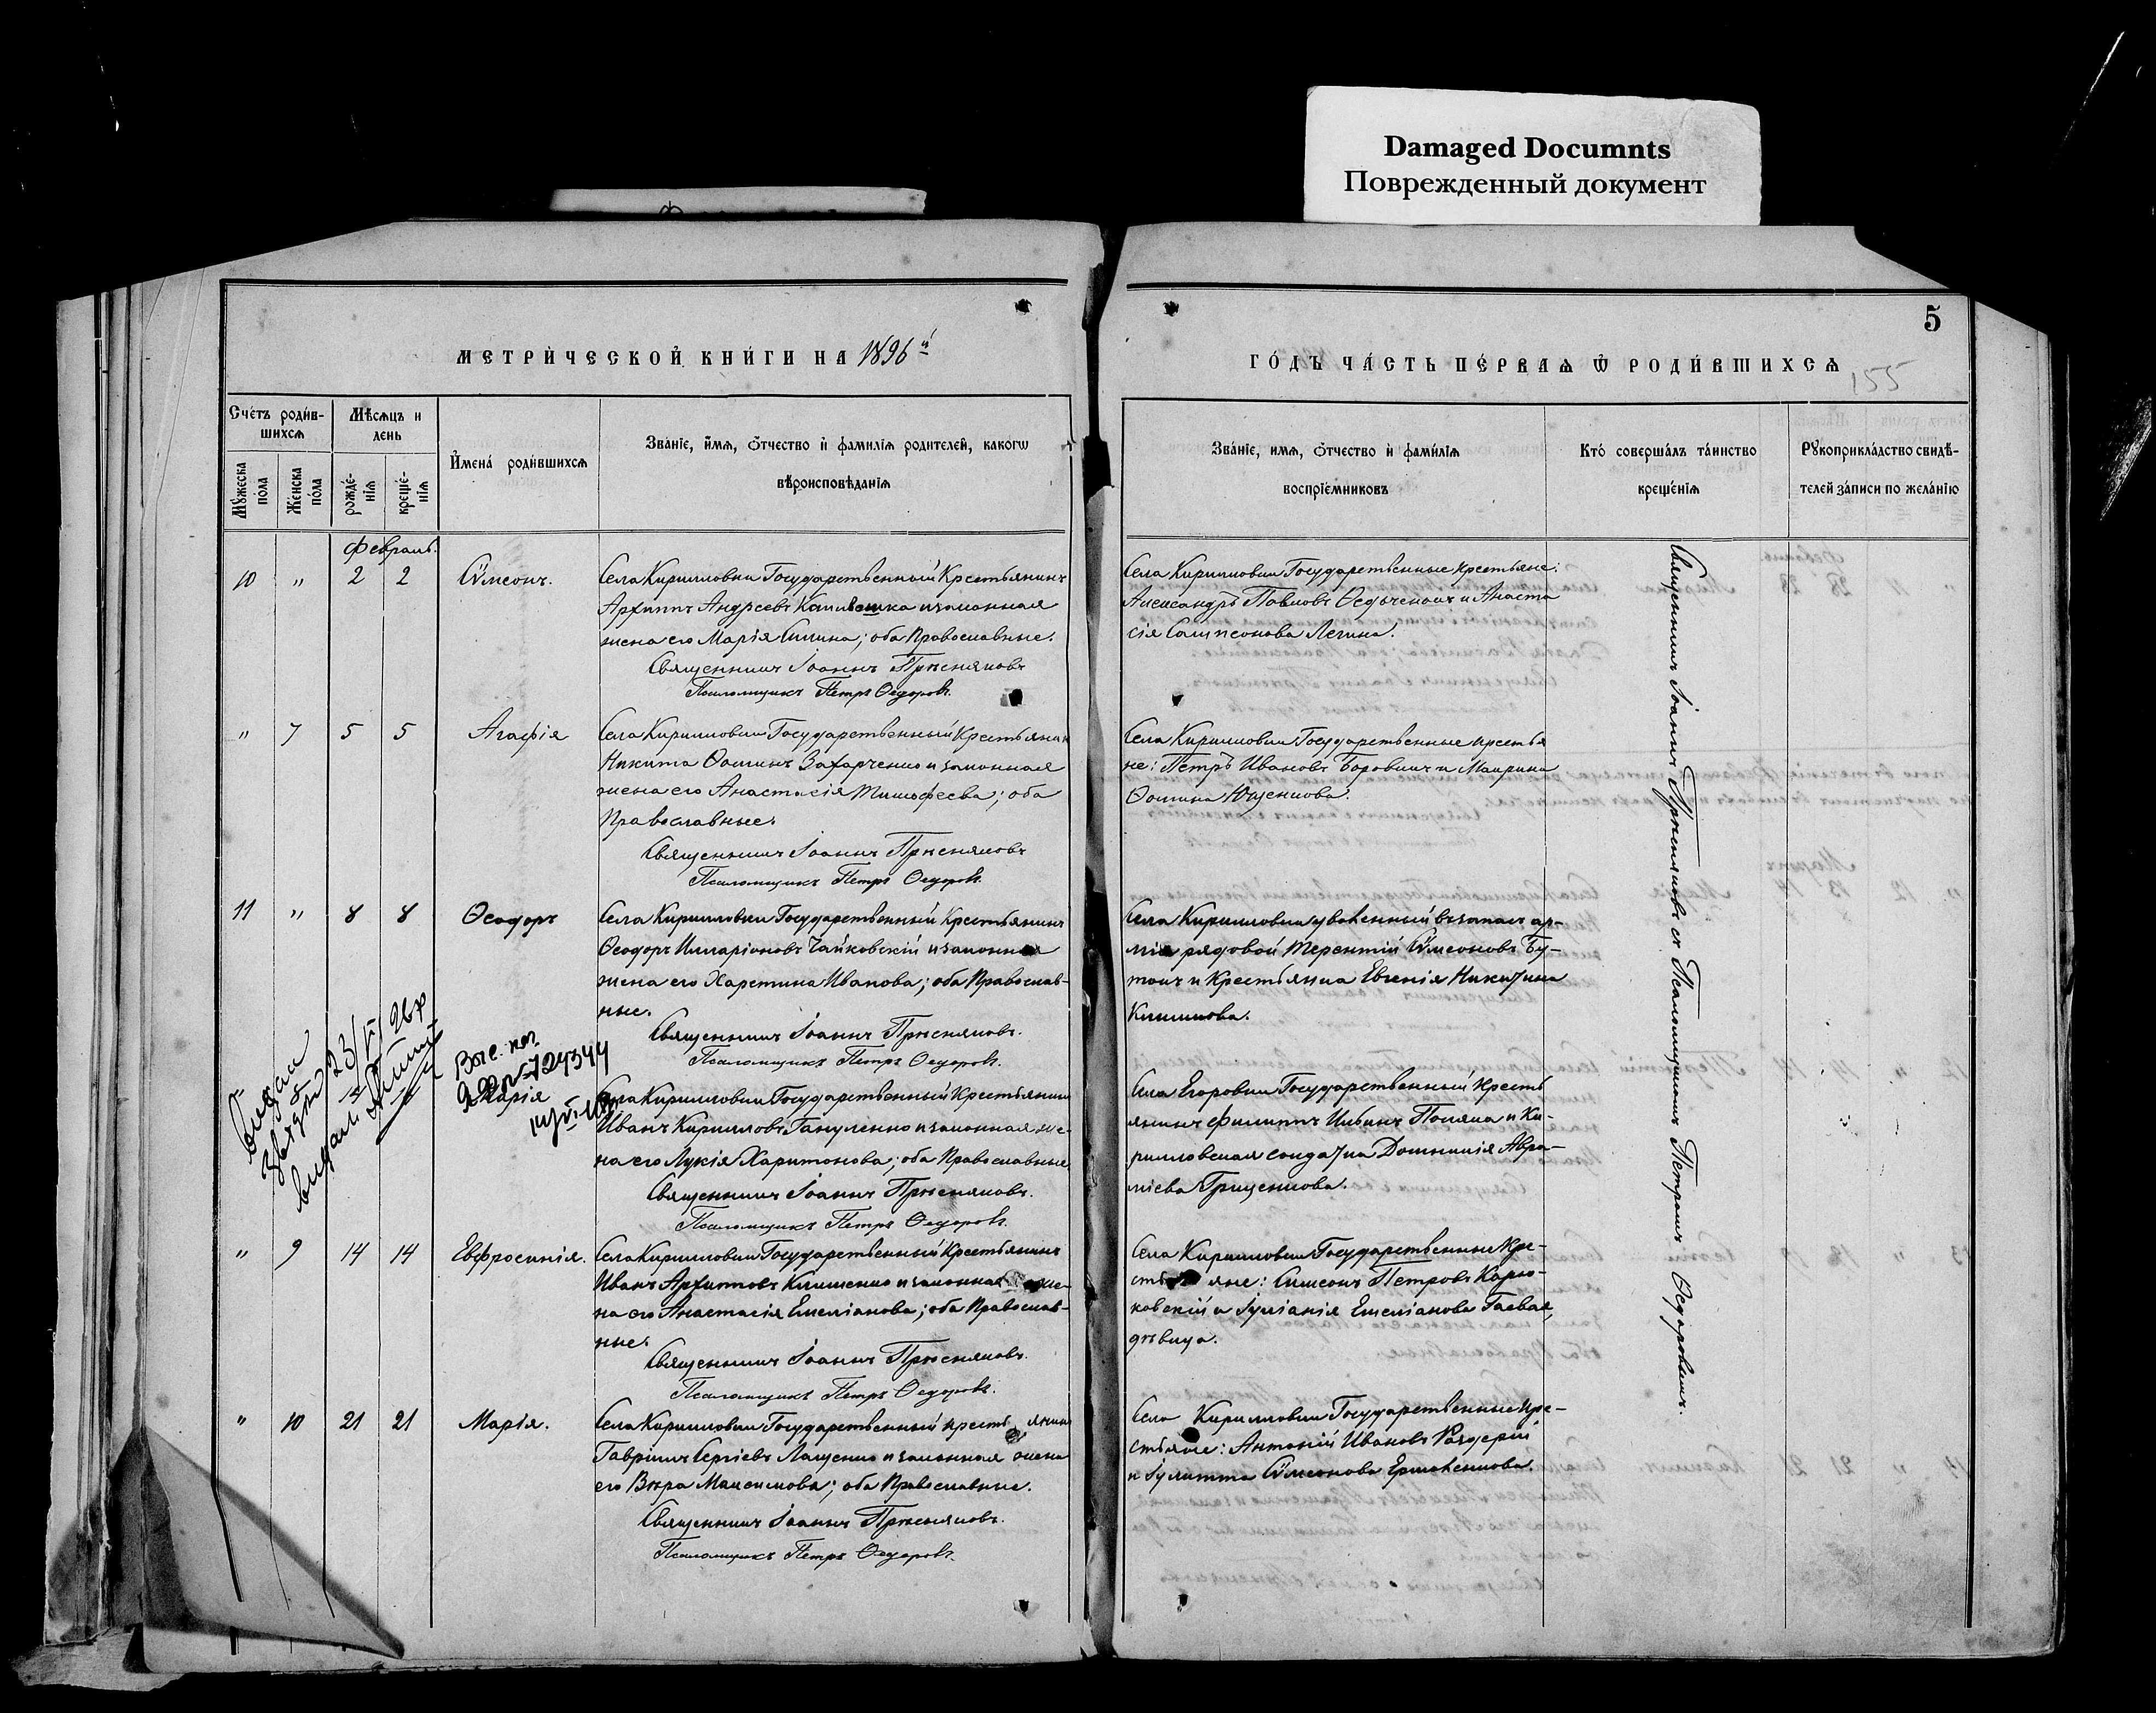 Damaged Documnts
Поврежденный документ
5
МЕТРИ́ЧЕСКОЙ КНИ́ГИ НА 1896й
ГО́ДЪ ЧА́СТЬ ПЕ́РВАѦ Ѿ РОДИ́ВШИХСѦ
155
Сче́тъ роди́в-
шихсѧ
Мѣсѧцъ и
день
И҆мена́ роди́вшихсѧ
Зва́нїе, и҆́мѧ, ѻ҆́тчество и҆ фами́лїѧ родителей, какогѡ
вѣроисповѣданїѧ
Мꙋжеска
пола
Женска
по́ла
рожде́-
нїѧ
креще́-
нїѧ
Зва́нїе, имѧ, ѻ҆́тчество и҆ фами́лїѧ
воспрїе́мниковъ
Кто́ соверша́лъ та́инство
креще́нїѧ
Рꙋкоприкла́дство свидѣ́-
телей за́писи по жела́нїю
Февраль.
10 " 2 2 Сѵмеонъ.
Села Кирилловки Государственный Крестьянинъ
Архиппъ Андреевъ законная
жена его Марія; оба Православные.
Священникъ Іоаннъ Прѣсняковъ
Псаломщикъ Петръ Ѳедоровъ.
Села Кирилловки Государственные крестьяне:
Александръ Павловъ и Анаста
сія Сампсонова
" 7 5 5 Агафія
Села Кирилловки Государственный Крестьянин
Никита Ѳоминъ Захарченко и законная
жена его Анастасія Тимофеева; оба
Православные.
Священникъ Іоаннъ Прѣсняковъ
Псаломщикъ Петръ Ѳедоровъ.
Села Кирилловки Государственные крестья
не: Петръ Ивановъ Боровикъ и Маврина
Ѳомина Ющенкова.
11 " 8 8 Ѳеодоръ
Села Кирилловки Государственный Крестьянинъ
Ѳеодоръ Илларіоновъ Чайковскій и законная
жена его Харетина Иванова; оба Православ-
ные.
Священникъ Іоаннъ Прѣсняковъ.
Псаломщикъ Петръ Ѳедоровъ.
Села Кирилловки уволенный въ запасъ ар-
міи рядовой Терентій Сѵмеоновъ Бу-
токъ и Крестьянка Евгенія Никитина
Климкова.
Марія
Села Кирилловки Государственный Крестьянинъ
Иванъ Кирилловъ Гануленко и законная же-
на его Лукія Харитонова; оба Православные
Священникъ Іоаннъ Прѣсняковъ.
Псаломщикъ Петръ Ѳедоровъ.
Села Егоровки Государственный Кресть
янинъ Филиппъ Поляка и Ки-
рилловская солдатка Домникія Авра-
міева Грищенкова.
" 9 14 14 Евфросинія.
Села Кирилловки Государственный Крестьянинъ
Иванъ Архипповъ Клименко и законная же-
на его Анастасія Емеліанова; оба Православ-
ные.
Священникъ Іоаннъ Прѣсняковъ.
Псаломщикъ Петръ Ѳедоровъ.
Села Кирилловки Государственные Кре-
стьяне: Симеонъ Петровъ Карю-
ковскій и Іуліанія Емеліанова Гаевая,
дѣвица.
" 10 21 21 Марія.
Села Кирилловки Государственный крестьянинъ
Гавріилъ Сергіевъ Лащенко и законная жена
его Вѣра Максимова; оба Православные.
Священникъ Іоаннъ Прѣсняковъ.
Псаломщикъ Петръ Ѳедоровъ.
Села Кирилловки Государственные Кре-
стьяне: Антоній Ивановъ
и Іулитта Сѵмеонова Ермоленкова.
Священникъ Іоаннъ Прѣсняковъ съ Псаломщикомъ Петромъ Ѳедоровымъ.